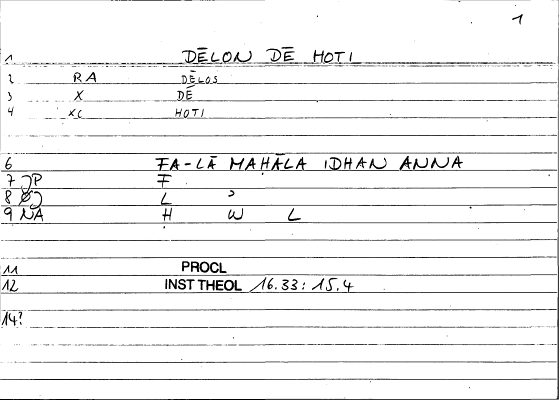 1
1 DĒLON DĒ HOTI
2 RA DĒLOS
3 X DĒ
4 XC HOTI
6 FA-LĀ MAḤĀLA IDHAN ANNA
7 JP F
8 L ʾ
9 NA H W L
11 PROCL
12 INST THEOL 16.33: 15.4
14?